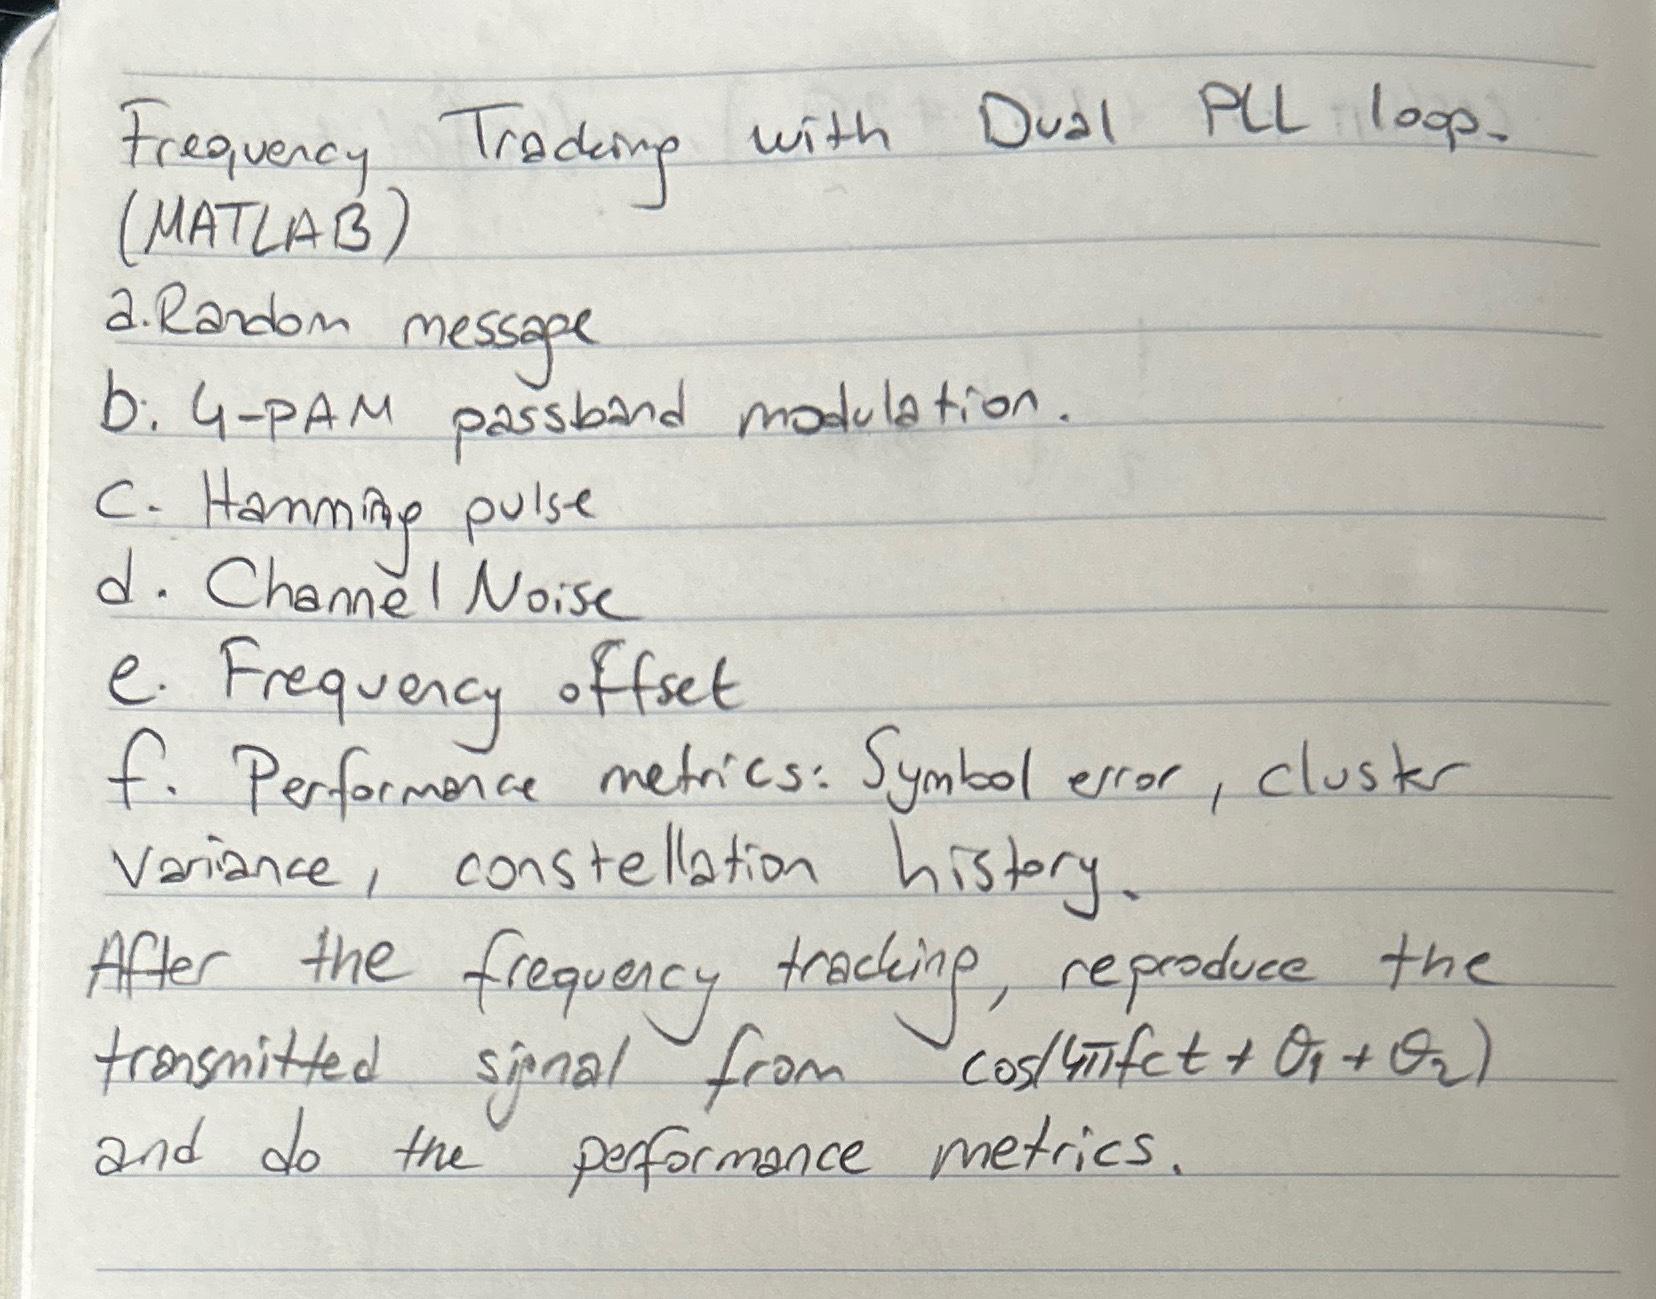 Frequency Tracking with Dual PLL loop.
(MATLAB)
a. Random message
b. 4-PAM passband modulation.
c. Hamming pulse
d. Channel Noise
e. Frequency offset
f. Performance metrics: Symbol error, cluster
variance, constellation history.
After the frequency tracking, reproduce the
transmitted signal from cos(4πfct + θ1 + θ2)
and do the performance metrics.